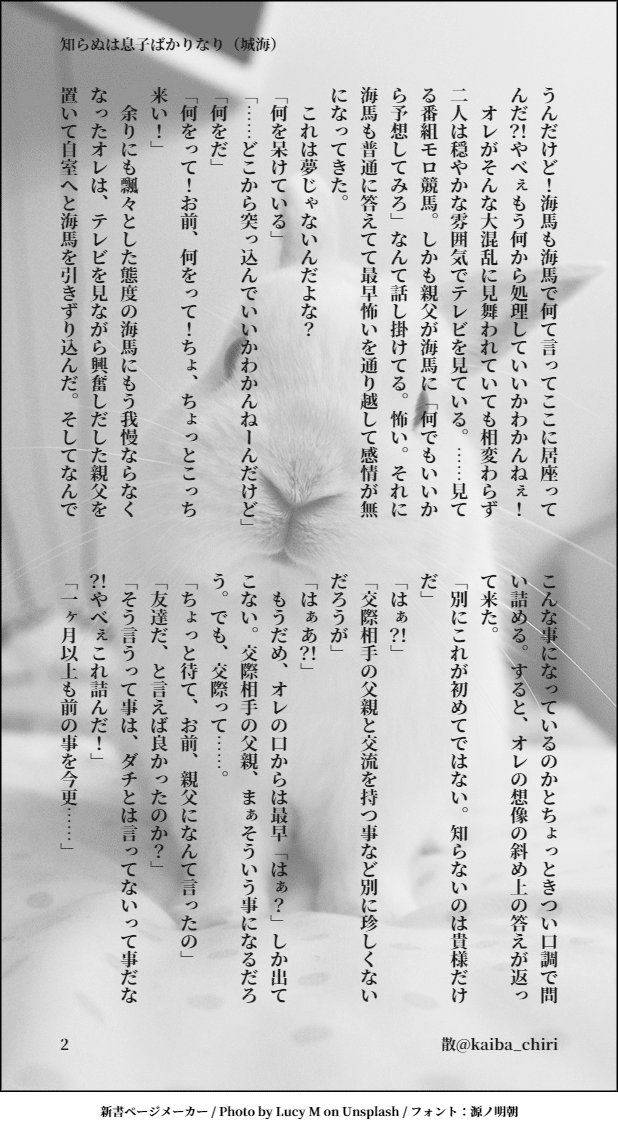 知らぬは息子ばかりなり（城海）
うんだけど！海馬も海馬で何て言ってここに居座って
んだ?!やべぇもう何から処理していいかわかんねぇ！
　オレがそんな大混乱に見舞われていても相変わらず
二人は穏やかな雰囲気でテレビを見ている。……見て
る番組モロ競馬。しかも親父が海馬に「何でもいいか
ら予想してみろ」なんて話し掛けてる。怖い。それに
海馬も普通に答えてて最早怖いを通り越して感情が無
になってきた。
　これは夢じゃないんだよな？
「何を呆けている」
「……どこから突っ込んでいいかわかんねーんだけど」
「何をだ」
「何をって！お前、何をって！ちょ、ちょっとこっち
来い！」
　余りにも飄々とした態度の海馬にもう我慢ならなく
なったオレは、テレビを見ながら興奮しだした親父を
置いて自室へと海馬を引きずり込んだ。そしてなんで
こんな事になっているのかとちょっときつい口調で問
い詰める。すると、オレの想像の斜め上の答えが返っ
て来た。
「別にこれが初めてではない。知らないのは貴様だけ
だ」
「はぁ?!」
「交際相手の父親と交流を持つ事など別に珍しくない
だろうが」
「はぁあ?!」
　もうだめ、オレの口からは最早「はぁ？」しか出て
こない。交際相手の父親、まぁそういう事になるだろ
う。でも、交際って……。
「ちょっと待て、お前、親父になんて言ったの」
「友達だ、と言えば良かったのか？」
「そう言うって事は、ダチとは言ってないって事だな
?!やべぇこれ詰んだ！」
「一ヶ月以上も前の事を今更……」
2
散@kaiba_chiri
新書ページメーカー / Photo by Lucy M on Unsplash / フォント：源ノ明朝